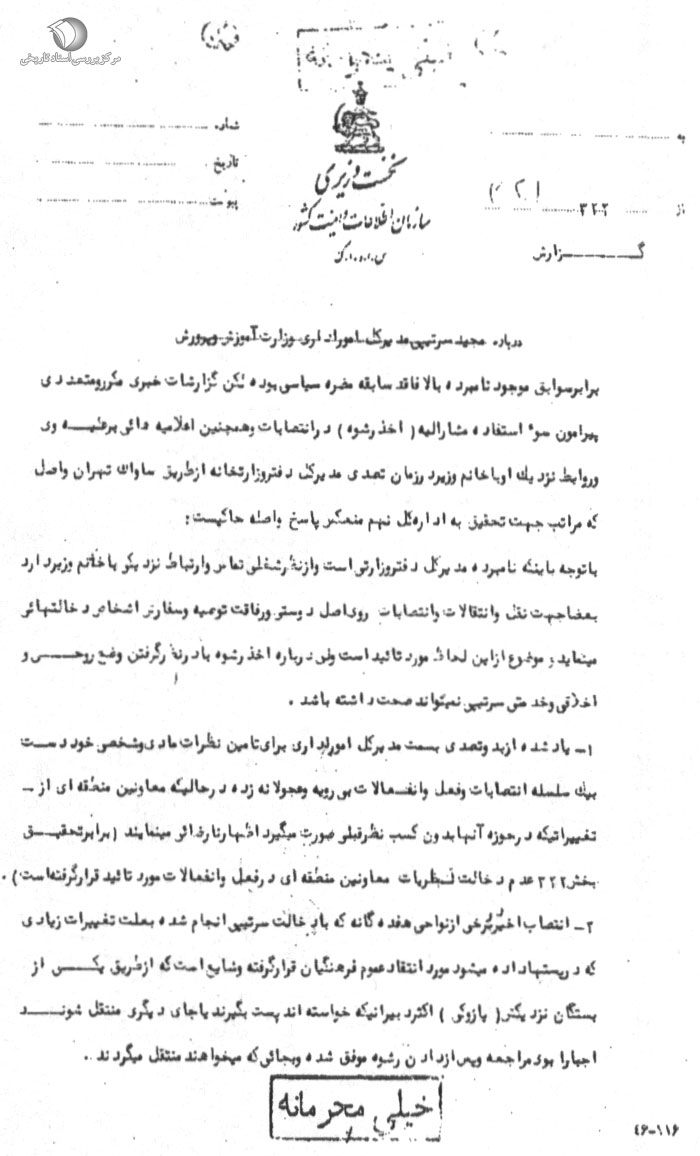 مرکز بررسی اسناد تاریخی
شماره
به
تاریخ
پیوست
از ۳۲۲
نخست وزیری
سازمان اطلاعات و امنیت کشور
س.ا.و.ا.ک
گـــــزارش
درباره مجید سرتیپی مدیرکل امور اداری وزارت آموزش و پرورش
برابر سوابق موجود نامبرده بالا فاقد سابقه مضره سیاسی بوده لکن گزارشات خبری مکرر و متعددی
پیرامون سوء استفاده مشارالیه ( اخذ رشوه ) در انتصابات و همچنین اعلامیه هائی برعلیـــه وی
و روابط نزدیک او با خانم وزیر در زمان تصدی مدیرکل دفتر وزارتخانه از طریق ساواک تهران واصل
که مراتب جهت تحقیق به اداره کل نهم منعکس پاسخ واصله حاکیست :
با توجه باینکه نامبرده مدیرکل دفتر وزارتی است و از نظر شغلی تماس و ارتباط نزدیکی با خانم وزیر دارد
بعضا جهت نقل و انتقالات و انتصابات روی اصل دوستی و رفاقت توصیه و سفارش اشخاص دخالتهائی
مینماید و موضوع از این لحاظ مورد تائید است ولی درباره اخذ رشوه با در نظر گرفتن وضع روحـــی و
اخلاقی و خدمتی سرتیپی نمیتواند صحت داشته باشد .
۱- یاد شده از بدو تصدی بسمت مدیرکل امور اداری برای تامین نظرات مادی و شخصی خود دست
بیک سلسله انتصابات و فعل و انفعالات بی رویه و عجولانه زده در حالیکه معاونین منطقه ای از ـ
تغییراتیکه در حوزه آنها بدون کسب نظر قبلی صورت میگیرد اظهار نارضائی مینمایند ( برابر تحقیـــق
بخش ۳۲۲ عدم دخالت نظریات معاونین منطقه ای در فعل و انفعالات مورد تائید قرار گرفته است ) .
۲- انتصاب اخیر برخی از نواحی هفده گانه که با دخالت سرتیپی انجام شده بعلت تغییرات زیادی
که در پستها داده میشود مورد انتقاد عموم فرهنگیان قرار گرفته و شایع است که از طریق یکـــی از
بستگان نزدیکش ( پازوکی ) اکثر دبیرانیکه خواسته اند پست بگیرند یا جای دیگری منتقل شونـــد
اجبارا بوی مراجعه و پس از دادن رشوه موفق شده و بجائی که میخواهند منتقل میگردند .
خیلی محرمانه
۴۶-۱۱۶